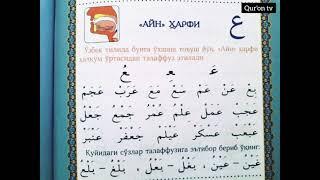 Qur'on tv
«АЙН» ҲАРФИ
ع
Ўзбек тилида бунга ўхшаш товуш йўқ. «Айн» ҳарфи
ҳалқум ўртасидан талаффуз этилади
عَ عِ عُ
بِعْ عَنْ عَمْ سَعْ مَعَ عَرَبَ عَجَمْ
عَمَلْ عِلْمْ عُمَرْ جَمَعَ جَعَلَ
عَسْكَرْ عَيْلَمْ جَعْفَرْ عَنْبَرْ
Қуйидаги сўзлар талаффузига эътибор бериб ўқинг:
عَيْنْ - غَيْنْ، بَعْلْ - بَغْلْ، بَلَعْ - بَلَغْ